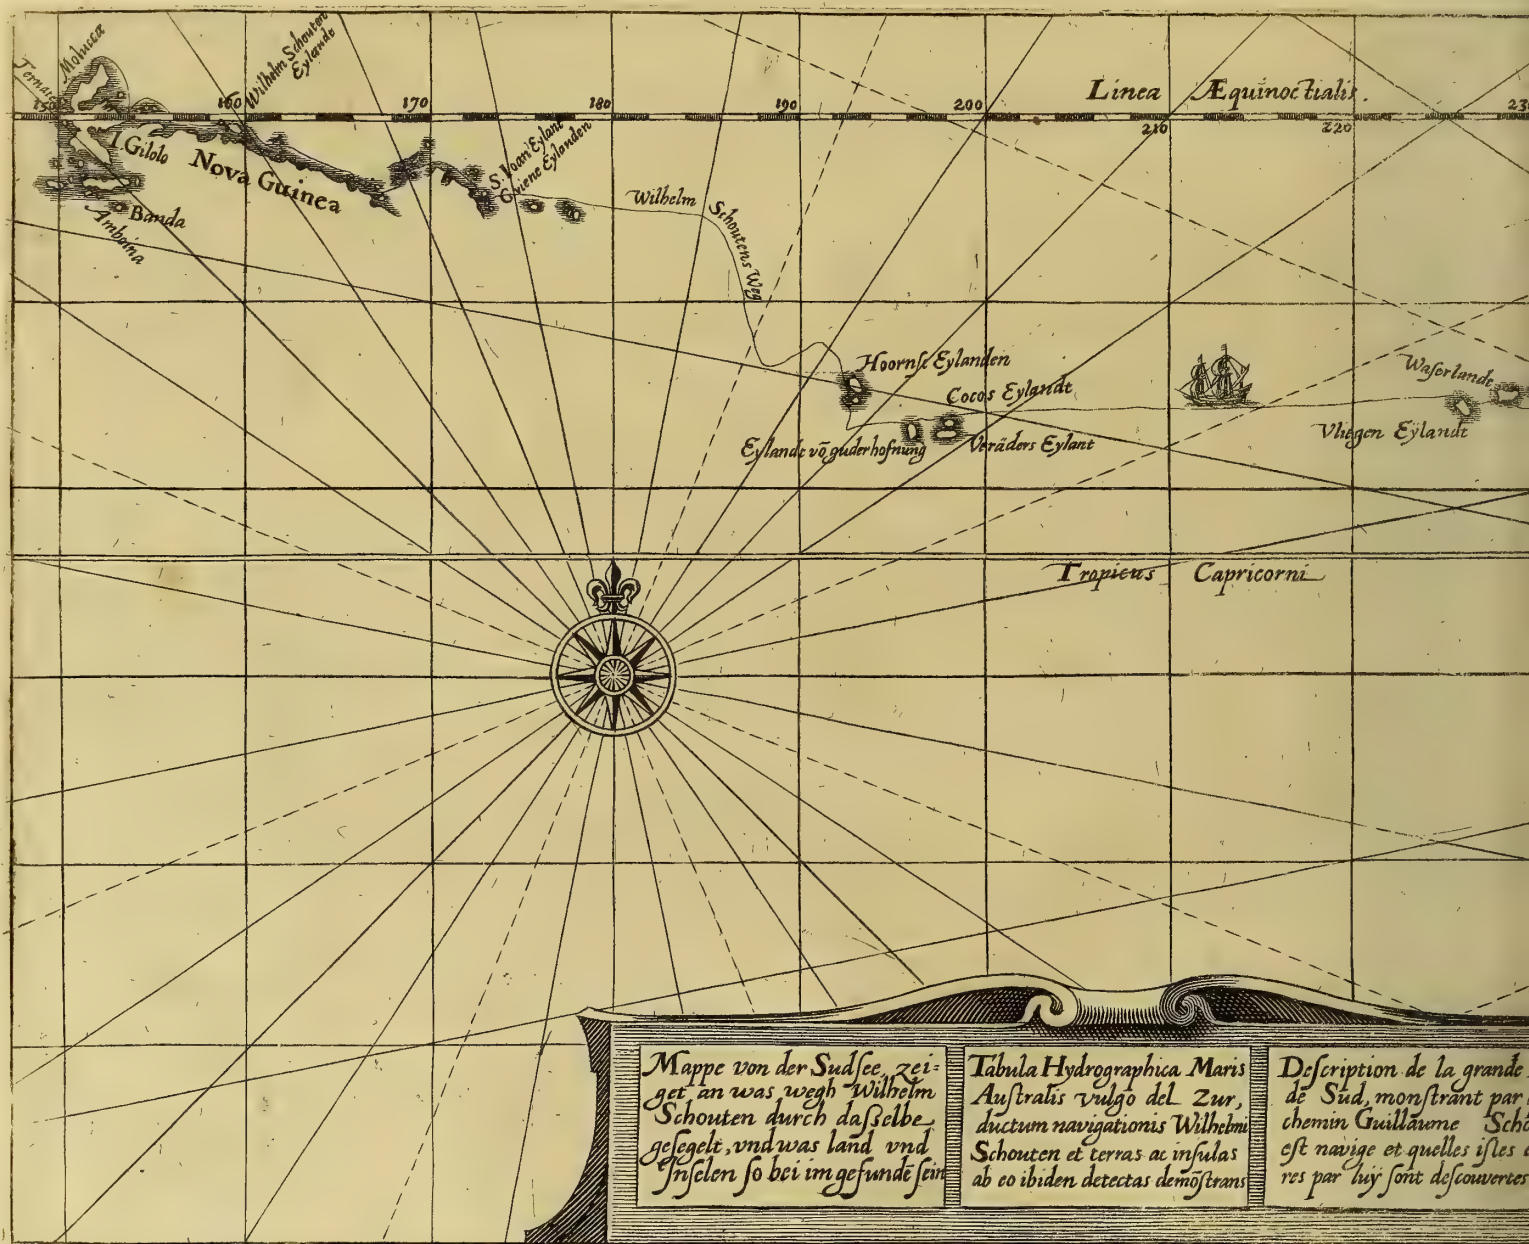 Molucca
Ternate
Wilhelm Schouten
Eylande
150
160
170
180
190
200
Linea Æquinoctialis.
210
220
230
I. Gilolo
Nova Guinea
S. Ioan Eylant
Banda
Amboina
Wilhelm Schoutens Weg
Hoornse Eylanden
Cocos Eylandt
Eylande vō guder hofnung
Veräders Eylant
Vliegen Eÿlandt
Tropicus Capricorni
Mappe von der Sudſee, zei=
get an was wegh Wilhelm
Schouten durch daſſelbe
geſegelt, vnd was land vnd
Inſelen ſo bei im gefundē ſein
Tabula Hydrographica Maris
Auſtralis vulgo del Zur,
ductum navigationis Wilhelmi
Schouten et terras ac inſulas
ab eo ibiden detectas demōſtrans
Deſcription de la grande
de Sud, monſtrant par
chemin Guillaume Scho
eſt navige et quelles iſles
res par luÿ ſont deſcouvertes